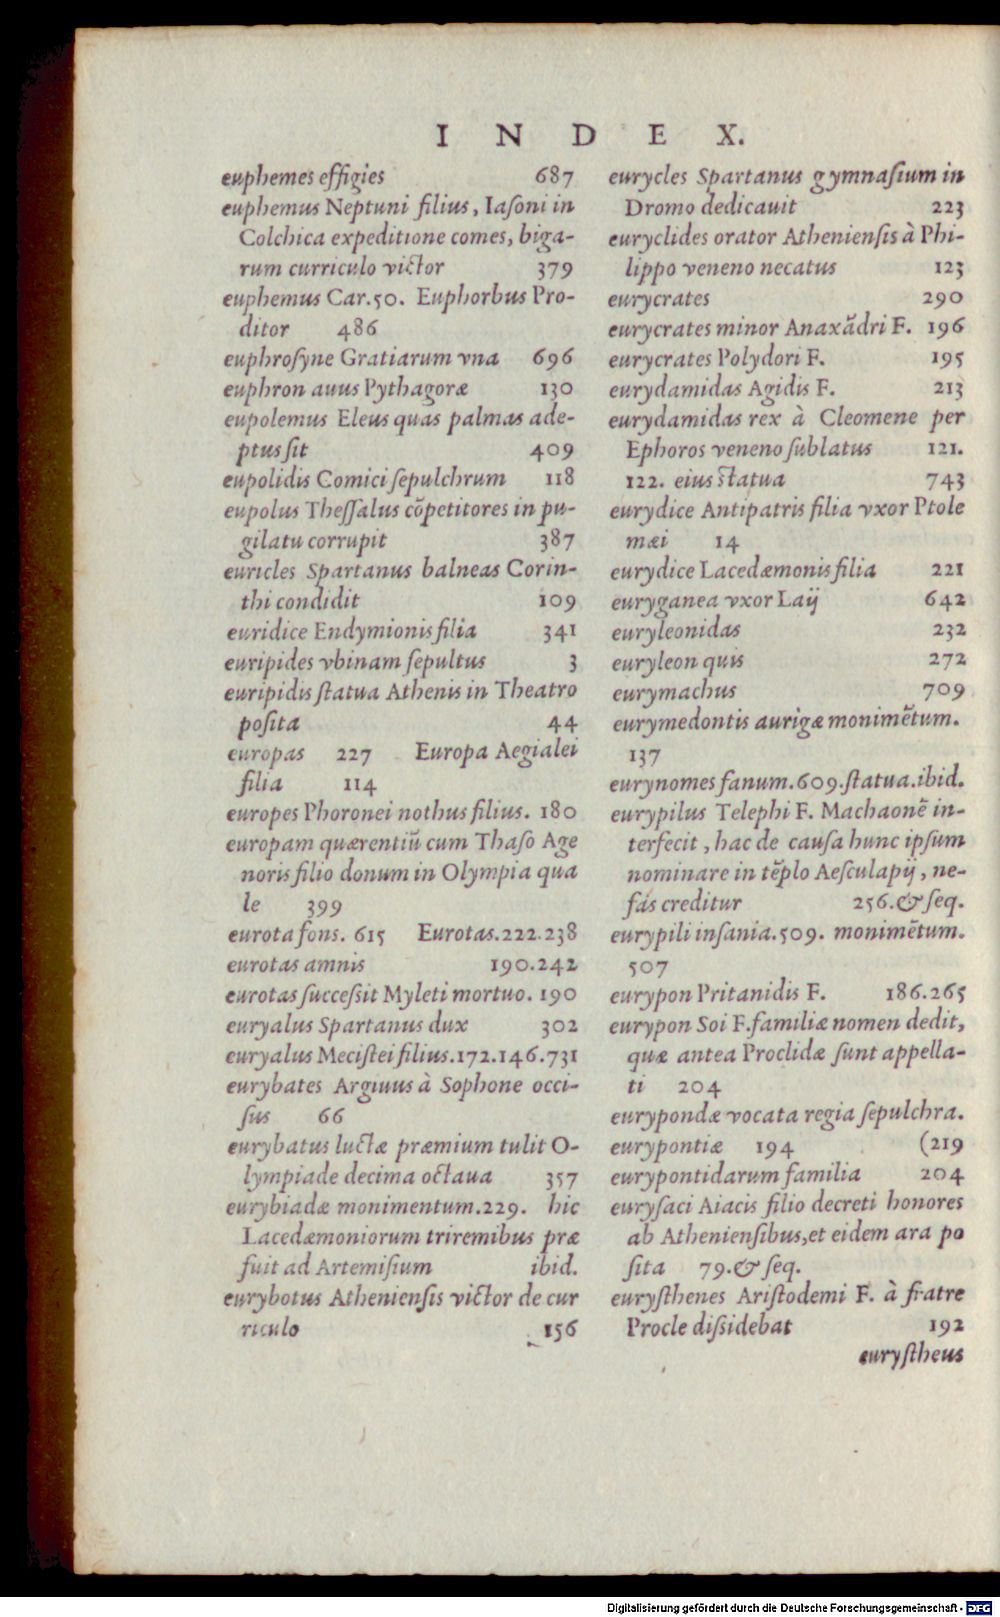 INDEX.
euphemes effigies 687
euphemus Neptuni filius, Iaſoni in
Colchica expeditione comes, biga-
rum curriculo victor 379
euphemus Car.50. Euphorbus Pro-
ditor 486
euphroſyne Gratiarum vna 696
euphron auus Pythagoræ 130
eupolemus Eleus quas palmas ade-
ptus ſit 409
eupolidis Comici ſepulchrum 118
eupolus Theſſalus cōpetitores in pu-
gilatu corrupit 387
euricles Spartanus balneas Corin-
thi condidit 109
euridice Endymionis filia 341
euripides vbinam ſepultus 3
euripidis ſtatua Athenis in Theatro
poſita 44
europas 227 Europa Aegialei
filia 114
europes Phoronei nothus filius. 180
europam quærentiū cum Thaſo Age
noris filio donum in Olympia qua
le 399
eurota fons. 615 Eurotas.222.238
eurotas amnis 190.242
eurotas ſucceſsit Myleti mortuo. 190
euryalus Spartanus dux 302
euryalus Meciſtei filius.172.146.731
eurybates Argiuus à Sophone occi-
ſus 66
eurybatus luctæ præmium tulit O-
lympiade decima octaua 357
eurybiadæ monimentum.229. hic
Lacedæmoniorum triremibus præ
fuit ad Artemiſium ibid.
eurybotus Athenienſis victor de cur
riculo 156
eurycles Spartanus gymnaſium in
Dromo dedicauit 223
euryclides orator Athenienſis à Phi-
lippo veneno necatus 123
eurycrates 290
eurycrates minor Anaxādri F. 196
eurycrates Polydori F. 195
eurydamidas Agidis F. 213
eurydamidas rex à Cleomene per
Ephoros veneno ſublatus 121.
122. eius ſtatua 743
eurydice Antipatris filia vxor Ptole
mæi 14
eurydice Lacedæmonis filia 221
euryganea vxor Laij 642
euryleonidas 232
euryleon quis 272
eurymachus 709
eurymedontis aurigæ monimētum.
137
eurynomes fanum.609.ſtatua.ibid.
eurypilus Telephi F. Machaonē in-
terfecit, hac de cauſa hunc ipſum
nominare in tēplo Aeſculapij, ne-
fas creditur 256.& ſeq.
eurypili inſania.509. monimētum.
507
eurypon Pritanidis F. 186.265
eurypon Soi F.familiæ nomen dedit,
quæ antea Proclidæ ſunt appella-
ti 204
eurypondæ vocata regia ſepulchra.
eurypontiæ 194 (219
eurypontidarum familia 204
euryſaci Aiacis filio decreti honores
ab Athenienſibus,et eidem ara po
ſita 79.& ſeq.
euryſthenes Ariſtodemi F. à fratre
Procle diſsidebat 192
euryſtheus
Digitalisierung gefördert durch die Deutsche Forschungsgemeinschaft - DFG